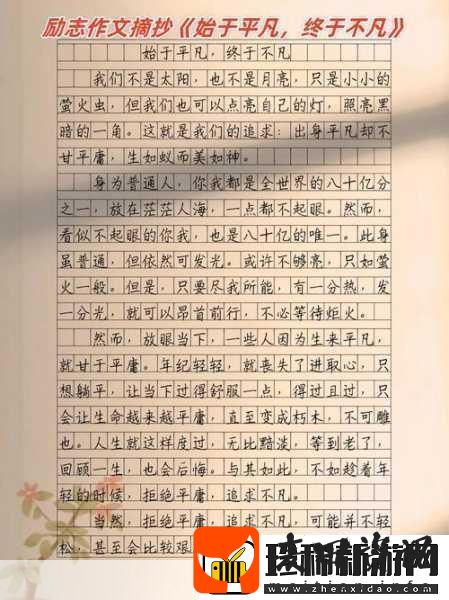 励志作文摘抄《始于平凡，终于不凡》
始于平凡，终于不凡
我们不是太阳，也不是月亮，只是小小的
萤火虫，但我们也可以点亮自己的灯，照亮黑
暗的一角。这就是我们的追求：出身平凡却不
甘平庸，生如蚁而美如神。
身为普通人，你我都是全世界的八十亿分
之一，放在茫茫人海，一点都不起眼。然而，
看似不起眼的你我，也是八十亿的唯一。此身
虽普通，但依然可发光。或许不够亮，只如萤
火一般。但是，只要尽我所能，有一分热，发
一分光，就可以昂首前行，不必等待炬火。
然而，放眼当下，一些人因为生来平凡，
就甘于平庸。年纪轻轻，就丧失了进取心，只
想躺平，让当下过得舒服一点，得过且过，只
会让生命越来越平庸，直至变成朽木，不可雕
也。人生就这样度过，无比黯淡，等到老了，
回顾一生，也会后悔。与其如此，不如趁着年
轻的时候，拒绝平庸，追求不凡。
当然，拒绝平庸，追求不凡，可能并不轻
松，甚至会比较艰
www.zhenxidao.com